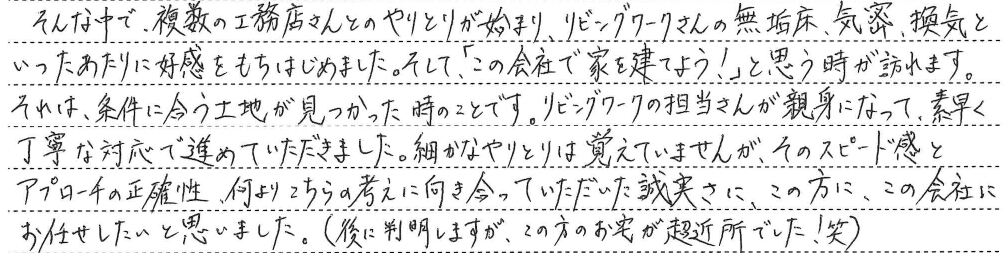 そんな中で、複数の工務店さんとのやりとりが始まり、リビングワークさんの無垢床、気密、換気と
いったあたりに好感をもちはじめました。そして、「この会社で家を建てよう!」と思う時が訪れます。
それは、条件に合う土地が見つかった時のことです。リビングワークの担当さんが親身になって、素早く
丁寧な対応で進めていただきました。細かなやりとりは覚えていませんが、そのスピード感と
アプローチの正確性、何よりこちらの考えに向き合っていただいた誠実さに、この方に、この会社に
お任せしたいと思いました。(後に判明しますが、この方のお宅が超近所でした!笑)